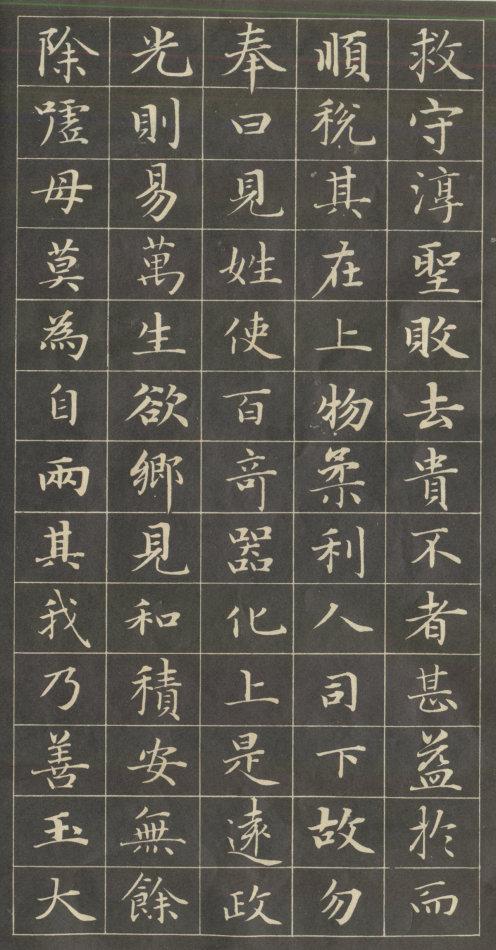 救守淳聖敗去貴不者甚益於而
順稅其在上物柔利人司下故勿
奉曰見姓使百竒器化上是遠政
光則易萬生欲鄉見和積安無餘
除噓毋莫為自兩其我乃善玉大